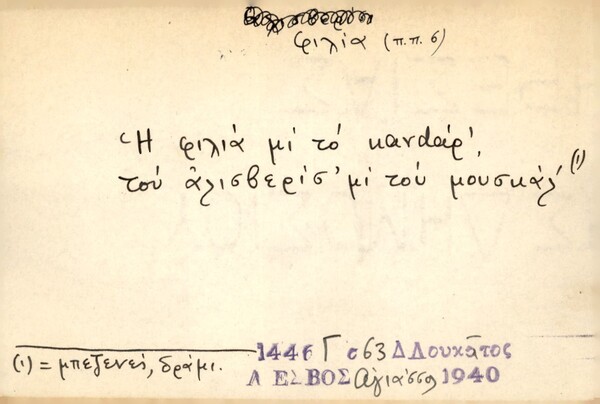 φιλία (π.π. σ)
Ἡ φιλιά μὶ τὸ καντάρ',
τοὺ ἀλισβερίσ' μὶ τοὺ μουσκάλ' (1)
(1) = μπεζενές, δράμι.
1446 Γ σ 63 Δ Λουκᾶτος
ΛΕΣΒΟΣ Ἁγιάσσος 1940